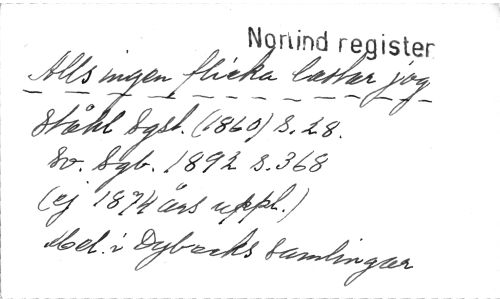 Norlind register
Alls ingen flicka lastar jag
Ståhl Sgsb. (1860) s. 28.
Sv. Sgb. 1892 s. 368
(ej 1874 års uppl.)
Mel. i Dybecks Samlingar